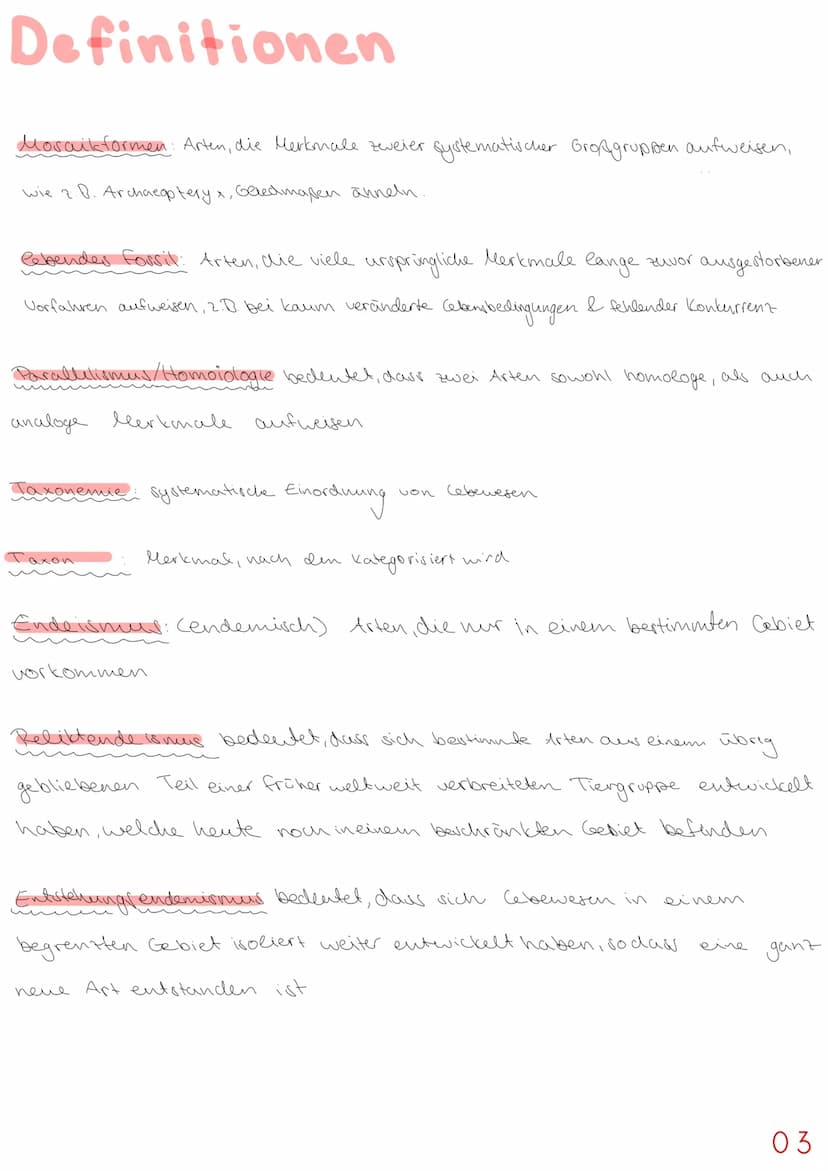 Definitionen
Mosaikformen: Arten, die Merkmale zweier systematischer Großgruppen aufweisen,
wie z.B. Archaeopteryx, Gliedmaßen ähneln.
lebendes Fossil: Arten, die viele ursprüngliche Merkmale lange zuvor ausgestorbener
Vorfahren aufweisen, z.B bei kaum veränderte Lebensbedingungen & fehlender Konkurrenz
Parallelismus/Homoiologie bedeutet, dass zwei Arten sowohl homologe, als auch
analoge Merkmale aufweisen
Taxonemie: systematische Einordnung von Lebewesen
Taxon : Merkmal, nach dem kategorisiert wird
Endeismus: (endemisch) Arten, die nur in einem bestimmten Gebiet
vorkommen
Reliktendeismus bedeutet, dass sich bestimmte Arten aus einem übrig
gebliebenen Teil einer früher weltweit verbreiteten Tiergruppe entwickelt
haben, welche heute noch in einem beschränkten Gebiet befinden
Entstehungsendemismus bedeutet, dass sich Lebewesen in einem
begrenzten Gebiet isoliert weiter entwickelt haben, sodass eine ganz
neue Art entstanden ist
03